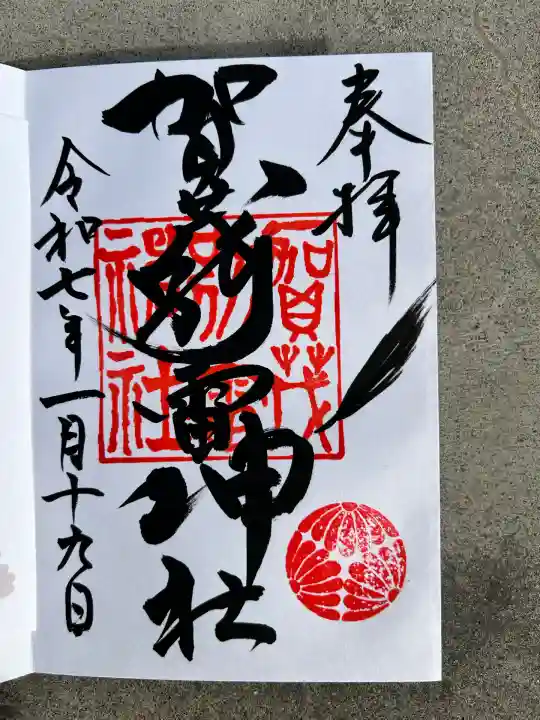 奉拝
賀茂別雷神社
賀茂
別雷
神社
令和七年一月十九日